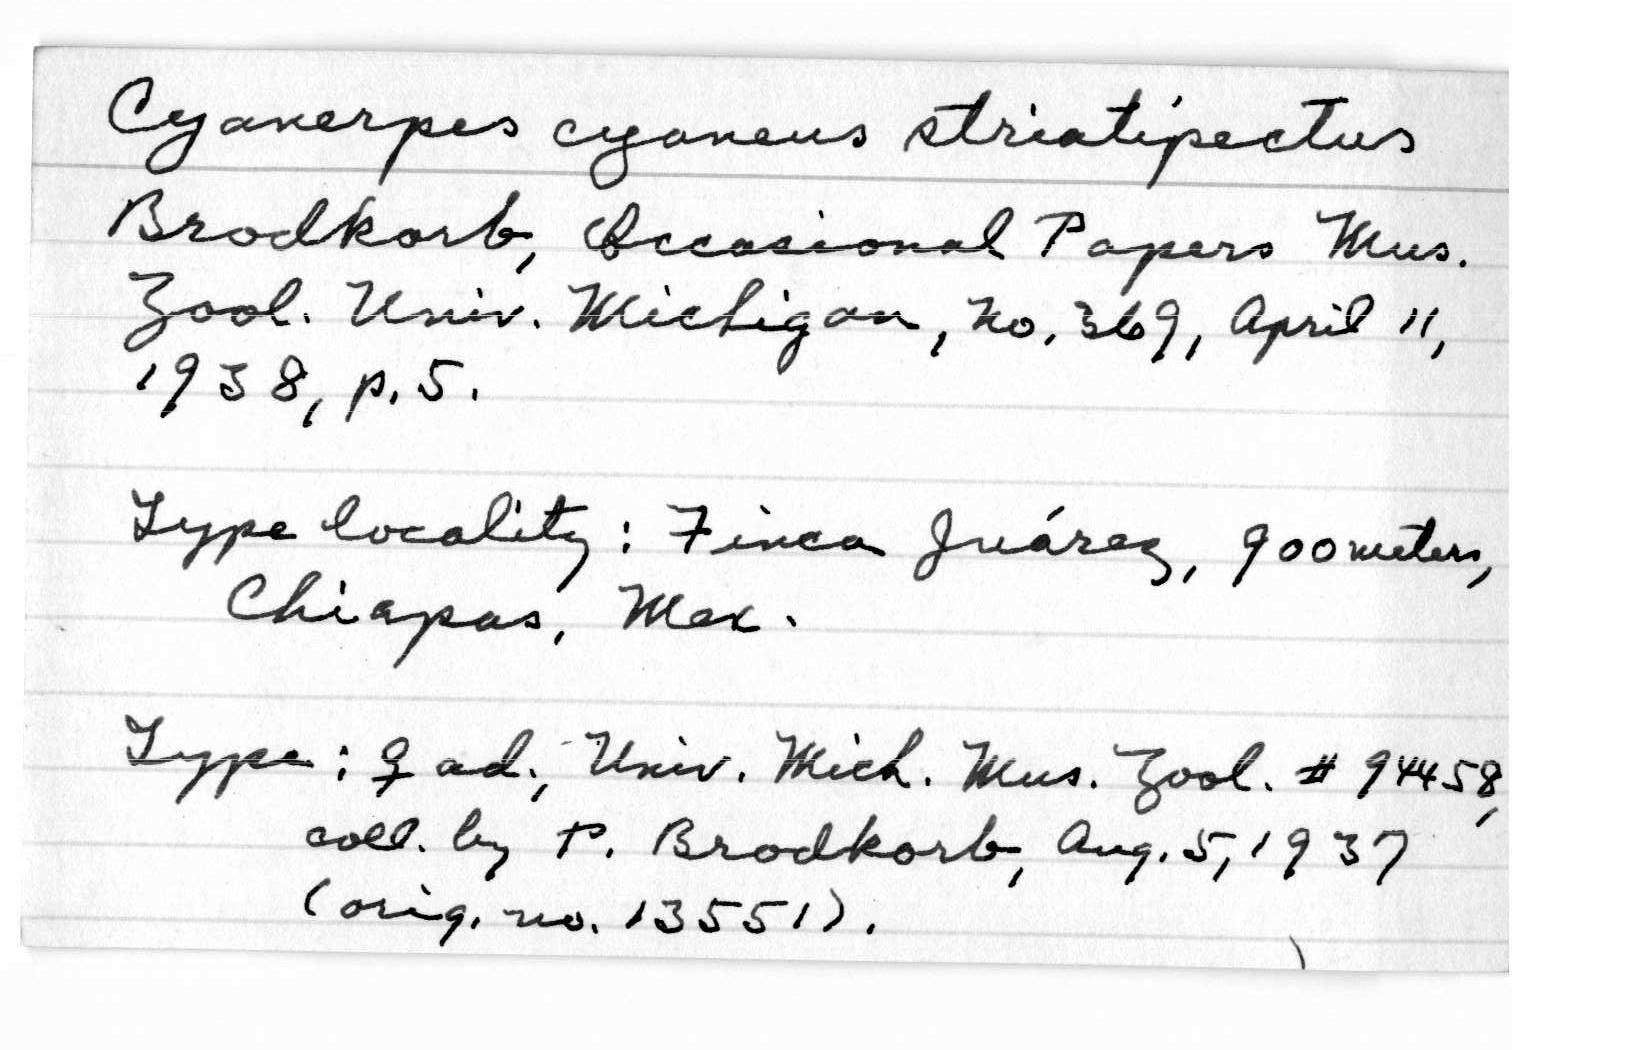 Cyanerpes cyaneus striatipectus
Brodkorb, Occasional Papers Mus.
Zool. Univ. Michigan, no. 369, April 11,
1938, p. 5.
Type locality: Finca Juárez, 900 meters,
Chiapas, Mex.
Type: ♀ ad., Univ. Mich. Mus. Zool. # 94458,
coll. by P. Brodkorb, Aug. 5, 1937
(orig. no. 13551).